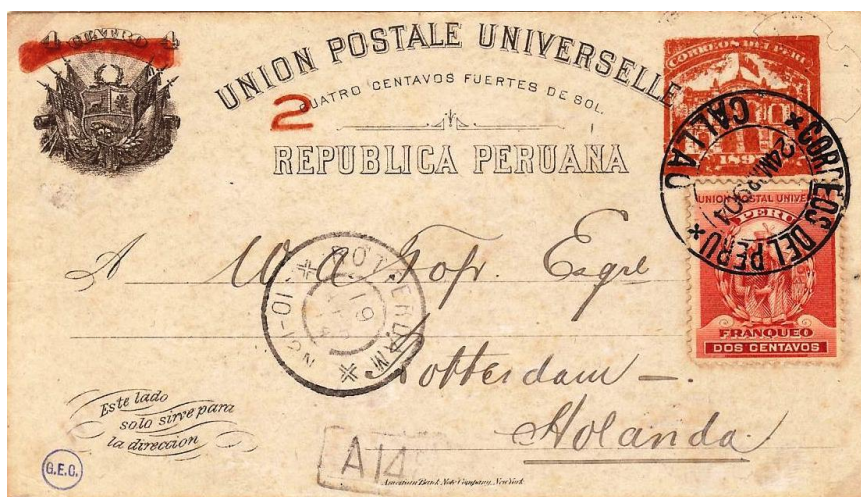 4 CENTRO 4
UNION POSTALE UNIVERSELLE
CUATRO CENTAVOS FUERTES DE SOL.
2
REPUBLICA PERUANA
CORREOS DEL PERU
189
CORREOS DEL PERU
CALLAO
24 MAR 904
UNION POSTAL UNIVER
PERU
FRANQUEO
DOS CENTAVOS
A W. A.
Esqre
ROTTERDAM
19
10-12N
Rotterdam —
Holanda.
Este lado
solo sirve para
la direccion
G.E.O.
A14
American Bank Note Company, New York